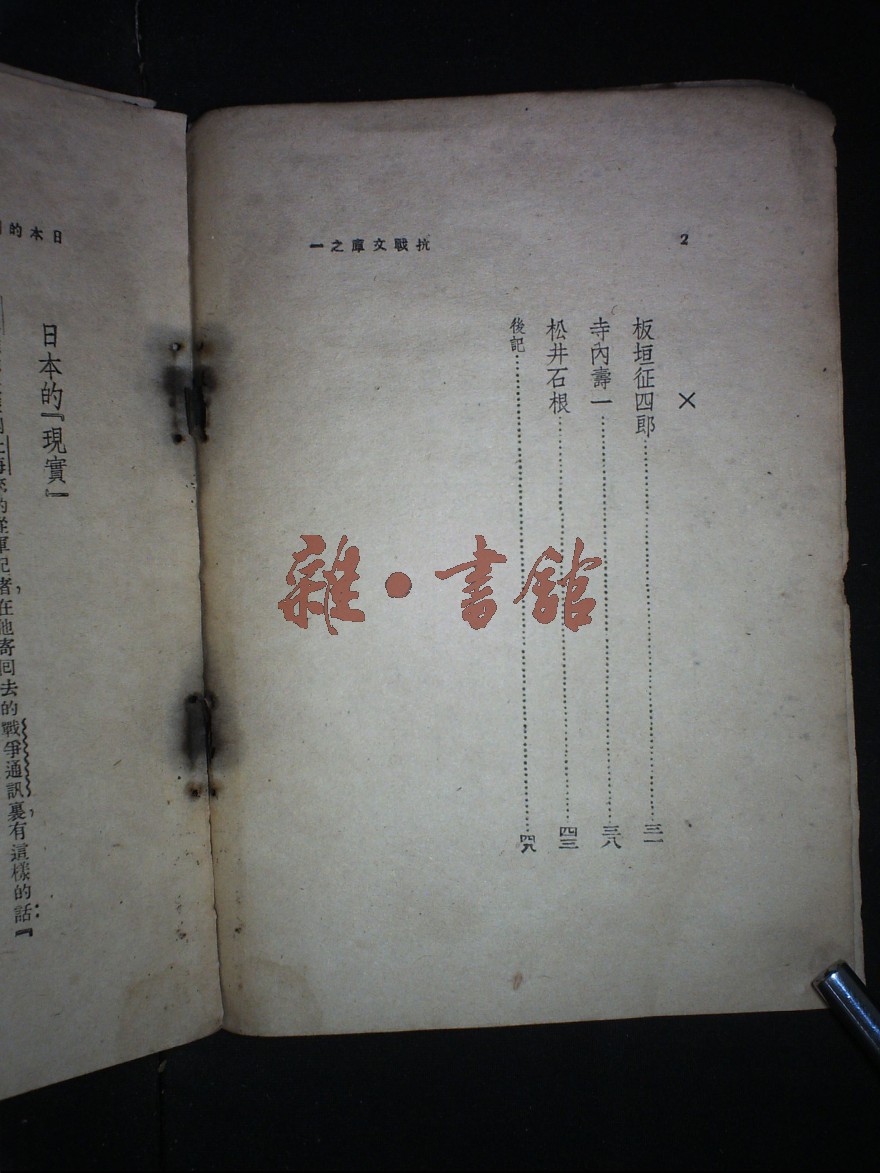 2
抗戰文庫之一
×
板垣征四郎……三一
寺內壽一……三八
松井石根……四三
後記……四八
雜·書館
日本的
日本的『現實』
的從軍記者，在他寄回去的戰爭通訊裏，有這樣的話：『